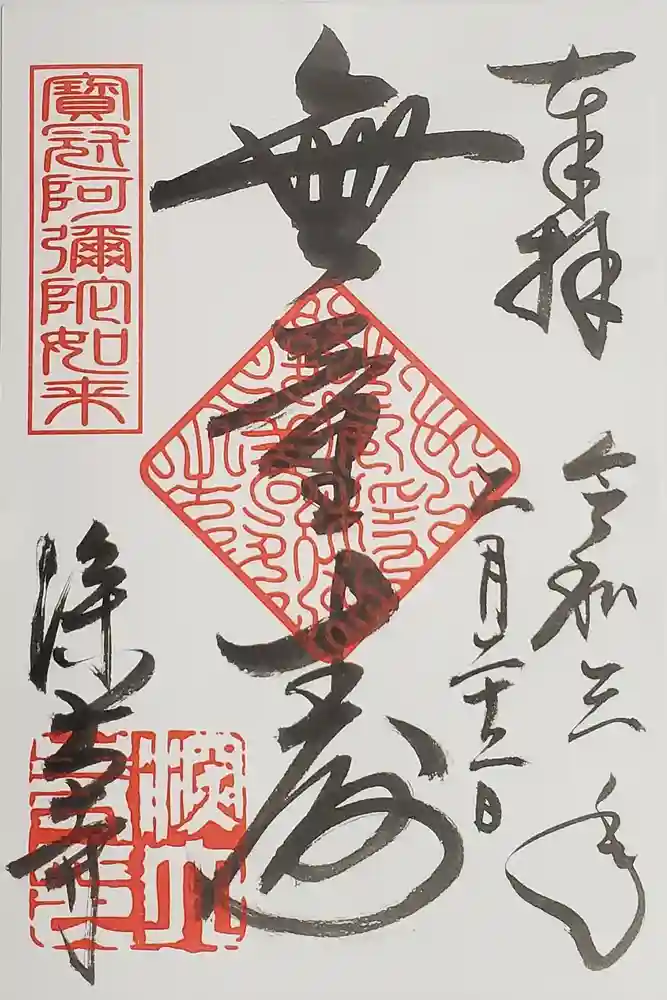 奉拝
令和三年
二月二十三日
無量寿
寶冠阿彌陀如来
深大寺